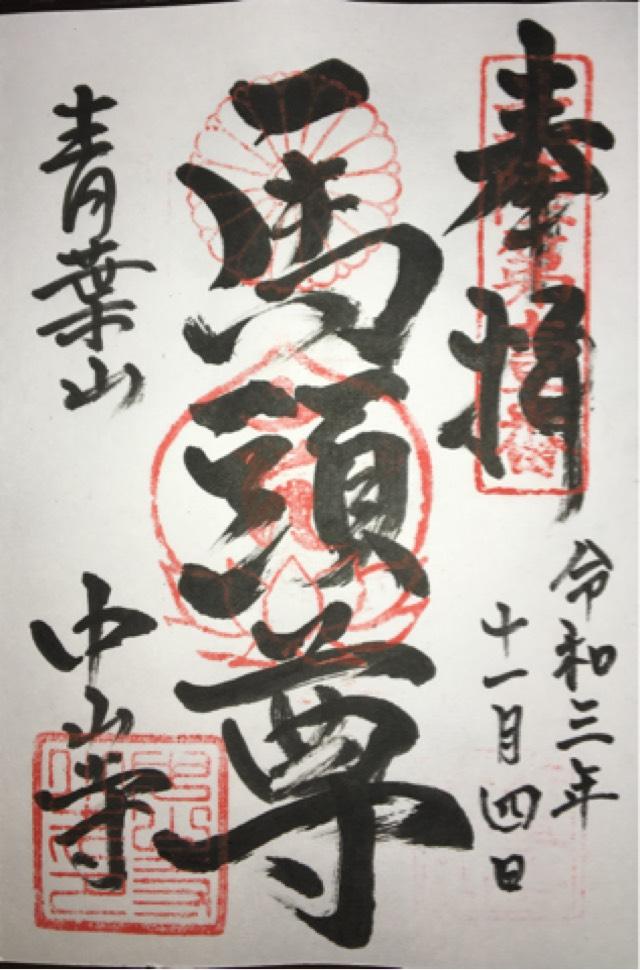 奉拝
令和三年
十一月四日
馬頭尊
青葉山
中山寺